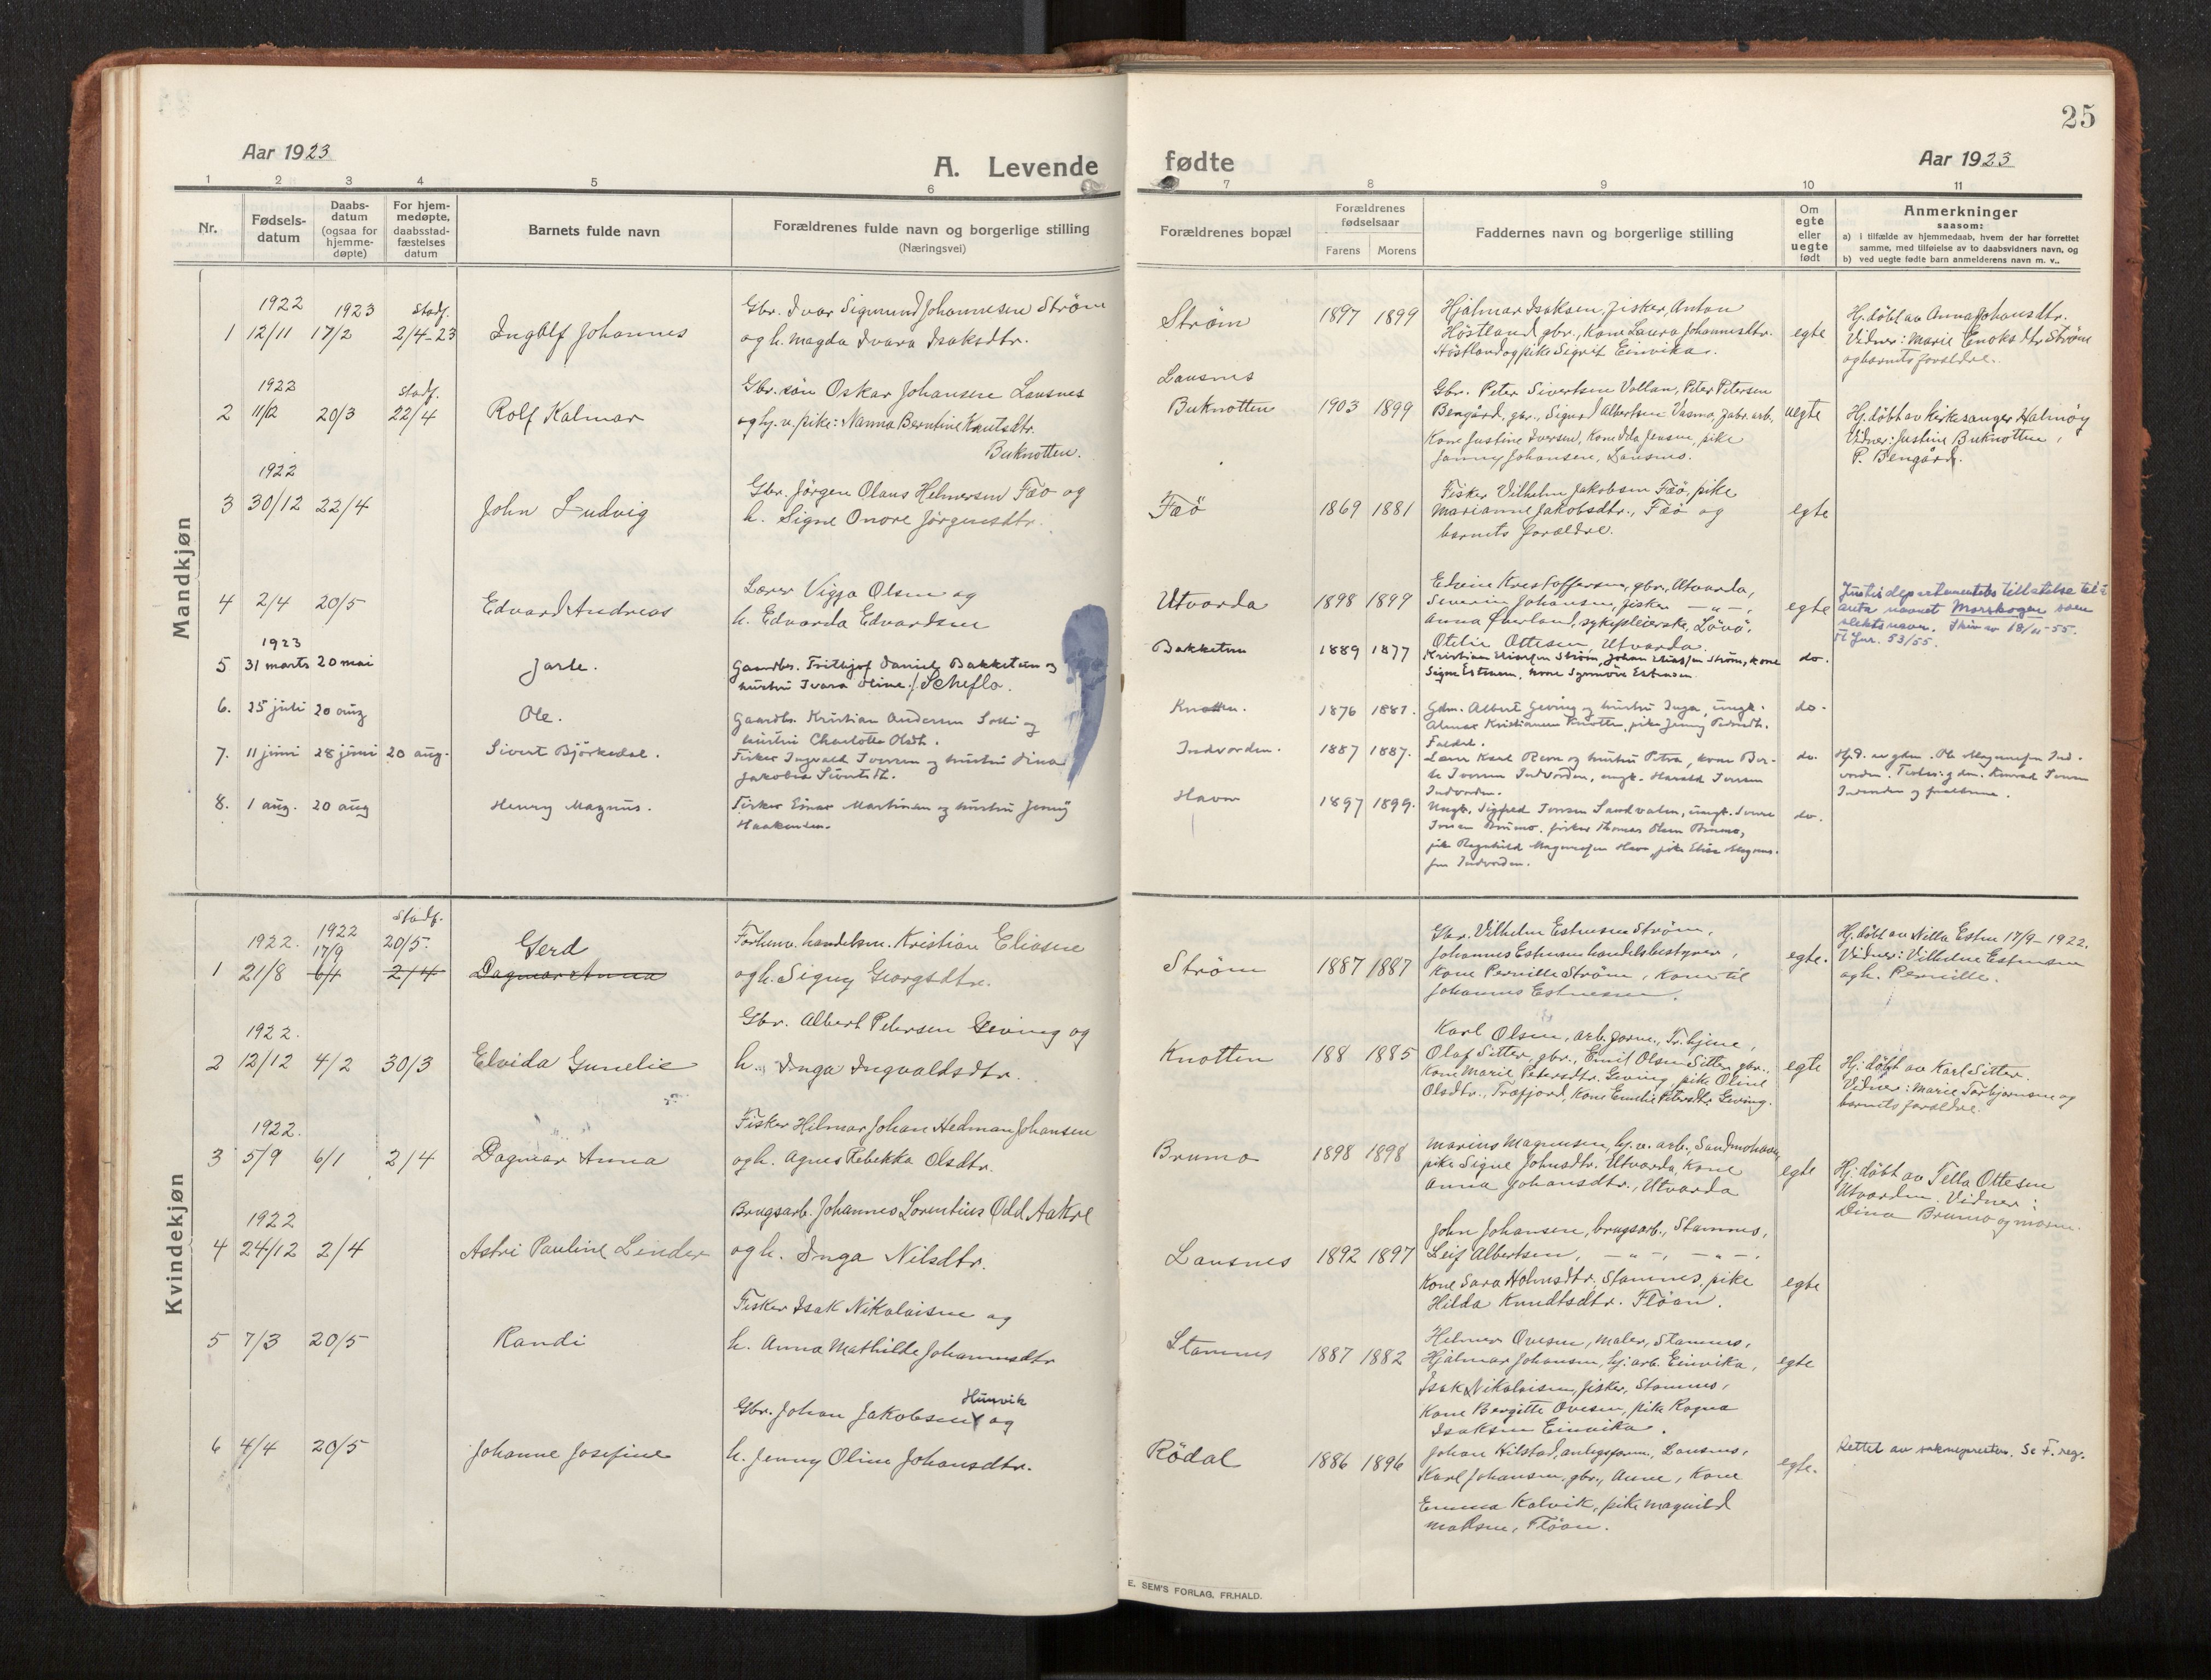 25
Aar 1923
A. Levende
fødte
Aar 1923
1 2 3 4 5 6 7 8 9 10 11
Nr.
Fødsels-
datum
Daabs-
datum
(ogsaa for
hjemme-
døpte)
For hjem-
medøpte,
daabsstad-
fæstelses
datum
Barnets fulde navn
Forældrenes fulde navn og borgerlige stilling
(Næringsvei)
Forældrenes bopæl
Forældrenes
fødselsaar
Farens Morens
Faddernes navn og borgerlige stilling
Om
egte
eller
uegte
født
Anmerkninger
saasom:
a) i tilfælde av hjemmedaab, hvem der har forrettet
samme, med tilføielse av to daabsvidners navn, og
b) ved uegte fødte barn anmelderens navn m. v..
Mandkjøn
1922 1923 Stadf.
1 12/11 17/2 2/4-23 Ingolf Johannes
Gbr. Ivar Sigmund Johannesen Strøm
og h. Magda Ivara Isaksdtr.
Strøm 1897 1899
Hjalmar Isaksen, fisker, Anton
Høstland, gbr., Kone Laura Johannesdtr.
Høstland og pike Sigrid Einvika.
egte
Hj. døbt av Anna Johansdtr.
Vidner: Marie Enoksdtr Strøm
og barnets forældre.
1922 Stadf.
2 11/12 20/3 22/4 Rolf Kalmar
Gbr. søn Oskar Johansen Lausnes
og hj. v. pike: Nanna Berntine Knutsdtr.
Buknotten.
Lausnes
Buknotten 1903 1899
Gbr. Peter Sivertsen Vollan, Peter Petersen
Bengård, gbr., Sigurd Albertsen Vasmo, fabr. arb.
Kone Justine Iversen, Kone Ida Jensen, pike
Jenny Johansen, Lausnes.
uegte
Hj. døbt av Kirkesanger Halmøy
Vidner: Justine Buknotten,
P. Bengård.
1922
3 30/12 22/4 John Ludvig
Gbr. Jørgen Olaus Helmersen Faø og
h. Signe Onore Jørgensdtr.
Faø 1869 1881
Fisker Vilhelm Jakobsen Faø, pike
Marianne Jakobsdtr., Faø og
barnets forældre.
egte
4 2/4 20/5 Edvard Andreas
Lærer Viggo Olsen og
h. Edvarda Edvardsen
Utvorda 1898 1899
Edvin Kristoffersen, gbr., Utvorda,
Severin Johansen, fisker — " —,
Anna Øverland, sykepleierske, Løvø,
Otelie Ottesen, Utvorda.
egte
Justisdepartementets tillatelse til å
anta navnet Morskogen som
slektsnavn. Skriv av 18/11-55.
Jnr. 53/55.
1923
5 31 marts 20 mai Jarle.
Gaardbr. Frithjof Daniels Bakketun og
hustru Ivara Oline / Scheflo.
Bakketun 1889 1877
Kristian Eliassen Strøm, Johan Eliassen Strøm, kone
Signe Estensen, kone Synnøve Estensen
do.
6. 25 juli 20 aug Ole.
Gaardbr. Kristian Andersen Solli og
hustru Charlotte Olsdt.
Knotten. 1876 1881.
Gdm. Albert Geving og hustru Inga, ungk.
Almar Kristiansen Knotten, pike Jenny
do.
7. 11 juni 28 juni 20 aug. Sivert Björkedal.
Fisker Ingvald Iversen og hustru Dina
Jakobia Sivertsdt.
Indvorden. 1887 1887.
Lærer Karl Rem og hustru Petra, kone
Iversen Indvorden, ungk. Harald Iversen
Indvorden.
do.
Hj.d. av gdm. Ole Magnussen Ind-
vorden. Testes: gdm. Konrad Iversen
Indvorden og forældrene.
8. 1 aug. 20 aug Henry Magnus.
Fisker Einar Martinsen og hustru Jenny
Haakensen.
Havn 1897 1899.
Ungk. Sigfred Jensen Sandvolen, ungk. Sverre
Jensen Brumo, fisker Thomas Olsen Brumo,
pike Ragnhild Magnussen Havn, pike Elise Magnus-
sen Indvorden.
do.
Kvindekjøn
1922. 1922 Stadf.
17/9 20/5.
1 21/8 6/1 2/4 Gerd
Dagmar Anna
Forhenv. handelsm. Kristian Eliasen
og h. Signy Georgsdtr.
Strøm 1887 1887
Gbr. Vilhelm Estensen Strøm,
Johannes Estensen handelsbestyrer,
Kone Pernille Strøm, Kone til
Johannes Estensen.
egte.
Hj. døbt av Nilla Esten 17/9-1922.
Vidner: Vilhelm Estensen
og h. Pernille.
1922.
2 12/12 4/2 30/3 Elvida Gunelie
Gbr. Albert Petersen Geving og
h. Inga Ingvaldsdtr.
Knotten 188 1885
Karl Olsen, arb. form., Trhjem,
Olaf Sitter, gbr., Emil Olsen Sitter, gbr.,
Kone Marie Petersdtr. Geving, pike Oline
Olsdtr., Trøfjord, Kone Emelie Petersdtr. Geving.
egte
Hj. døbt av Karl Sitter.
Vidner: Marie Torbjørnsen og
barnets forældre.
1922.
3 5/9 6/1 2/4 Dagmar Anna
Fisker Hilmar Johan Hedman Johansen
og h. Agnes Rebekka Olsdtr.
Brumo 1898 1898
Marius Magnusen, hj.v. arb., Sandmohavn
pike Signe Johnsdtr. Utvorda, Kone
Anna Johansdtr., Utvorda
egte
Hj. døbt av Tella Ottesen
Utvorden. Vidner:
Dina Brumo og moren.
1922
4 24/12 2/4 Astri Pauline Linder
Brugsarb. Johannes Lorentius Odd Aakre
og h. Inga Nilsdtr.
Lausnes 1892 1897
John Johansen, brugsarb., Stamnes,
Leif Albertsen, — " —, — " —.
Kone Sara Holmsdtr. Stamnes, pike
Hilda Knudtsdtr. Fløan.
egte
5 7/3 20/5 Randi
Fisker Isak Nikolaisen og
h. Anna Mathilde Johannesdtr
Stamnes 1887 1882
Helmer Ovesen, maler, Stamnes,
Hjalmar Johansen, hj. arb. Einvika,
Isak Nikolaisen, fisker, Stamnes,
Kone Bergitte Ovesen, pike Ragna
Isaksen Einvika.
egte
6 4/4 20/5 Johanne Josefine
Hunvik
Gbr. Johan Jakobsen og
h. Jenny Oline Johansdtr.
Rödal 1886 1896
Johan Hilstad, anlegsform., Lausnes,
Karl Johansen, gbr., Aune, Kone
Emma Kalvik, pike Magnild
Maksen, Fløan.
egte.
Rettet av soknepresten. Se F. reg.
E. SEM'S FORLAG, FR.HALD.